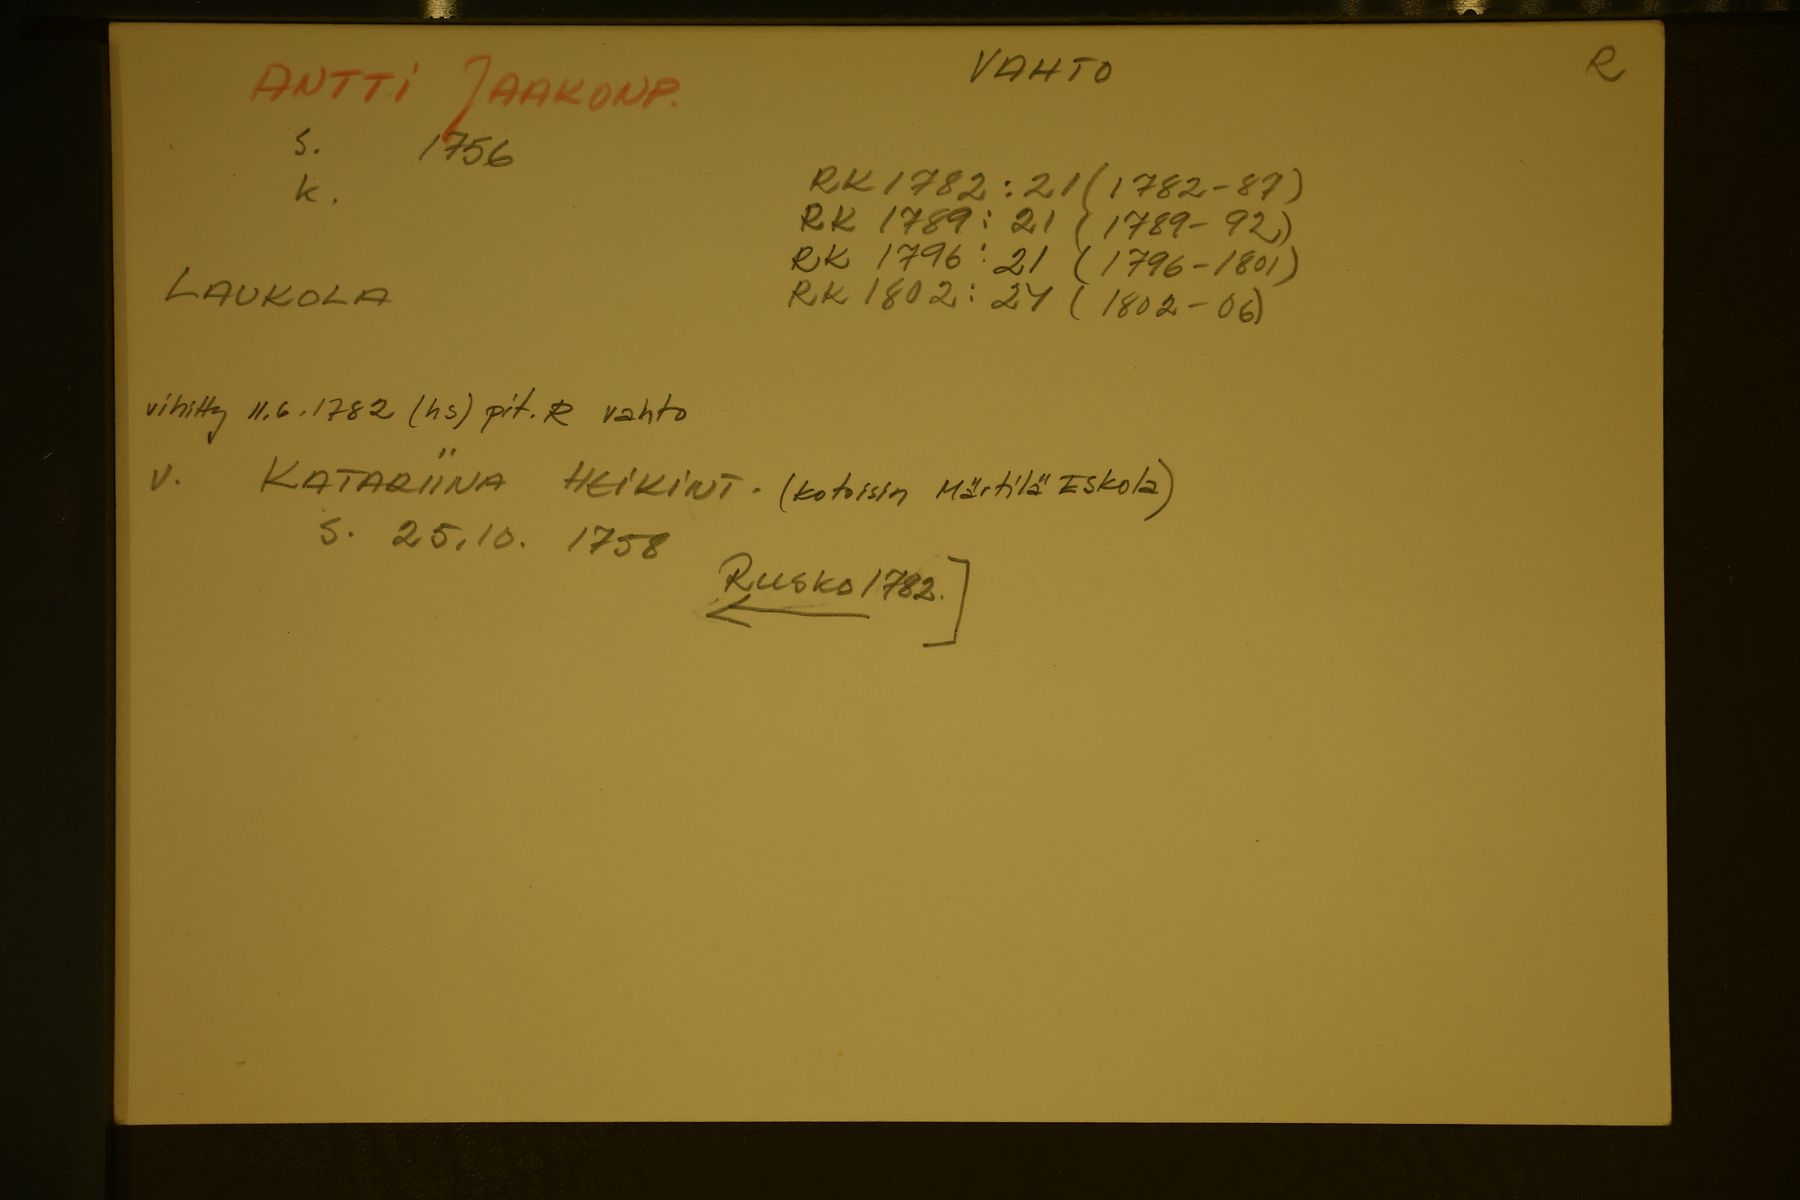 ANTTI JAAKONP.
VAHTO
R
S. 1756
k.
RK 1782:21 (1782-87)
RK 1789:21 (1789-92)
RK 1796:21 (1796-1801)
RK 1802:24 (1802-06)
LAUKOLA
vihitty 11.6.1782 (hs) pit. R vahto
V. KATARIINA HEIKINT. (kotoisin Märtilä Eskola)
S. 25.10. 1758
Rusko 1782.]
←